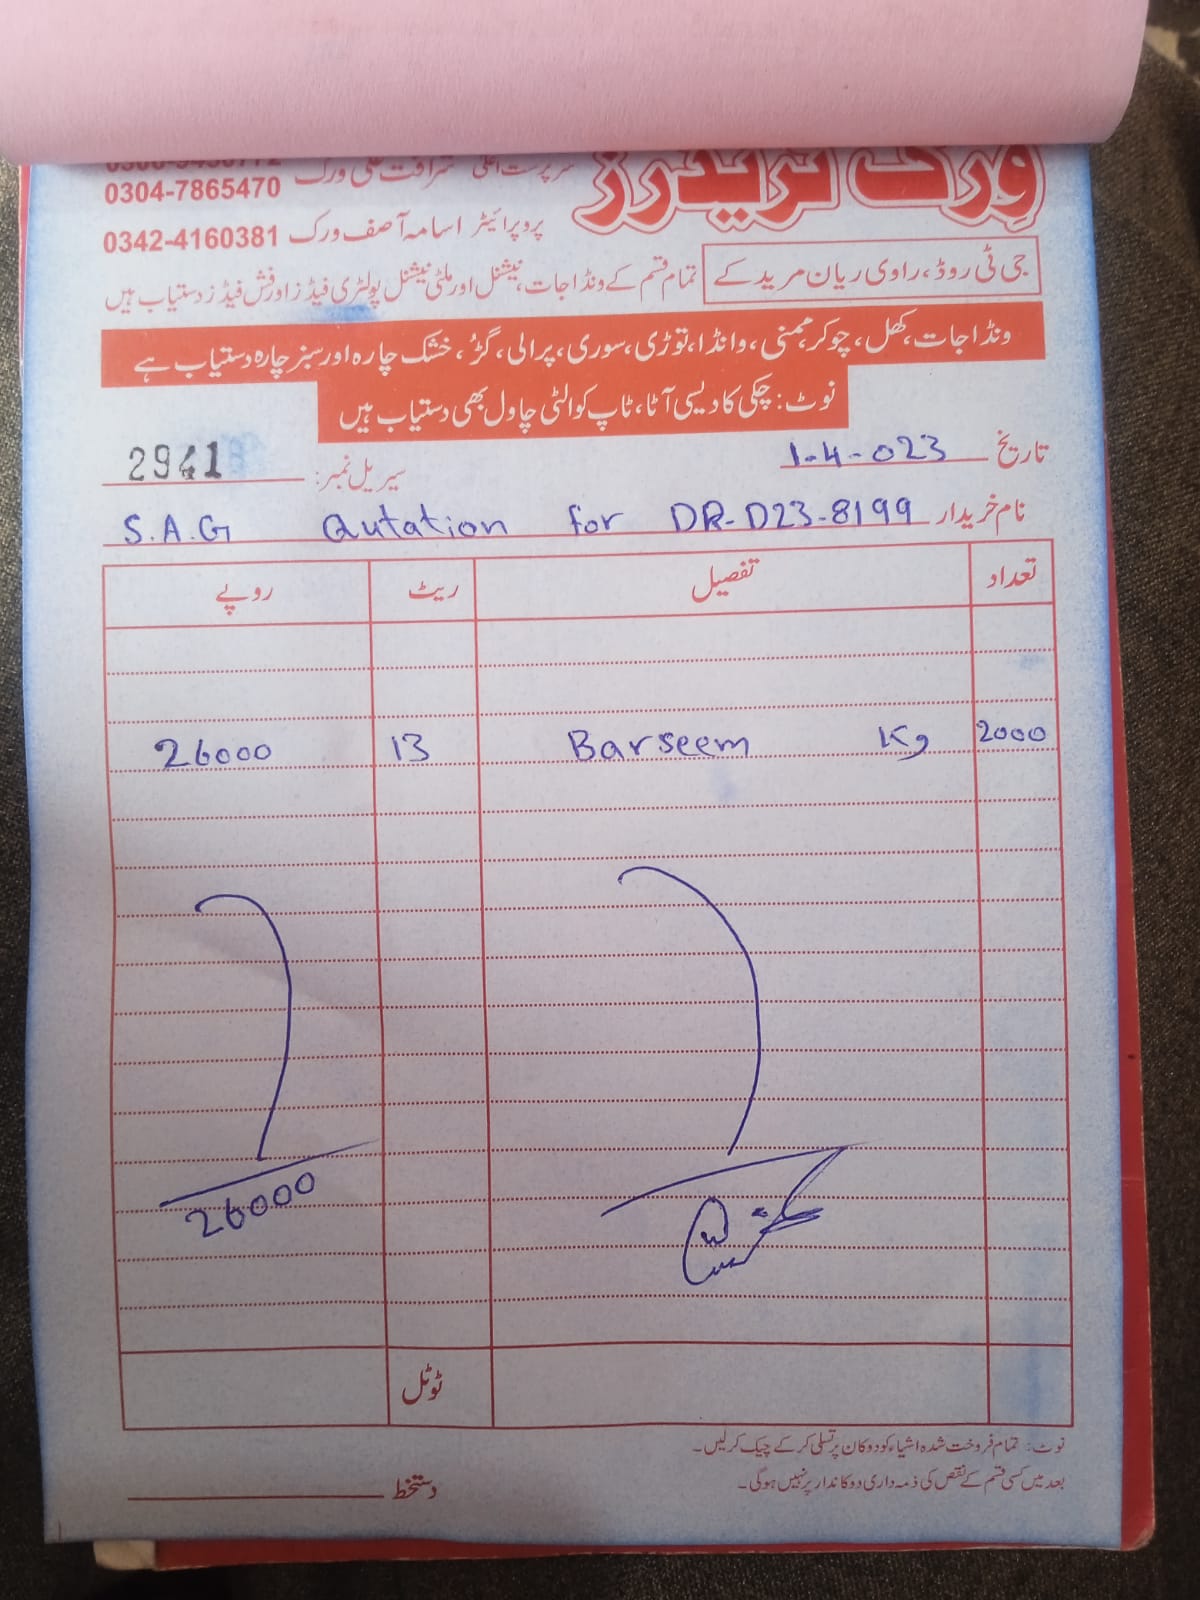 ورک ٹریڈرز
سرپرست اعلیٰ شرافت علی ورک
0304-7865470
پروپرائیٹر اسامہ آصف ورک 0342-4160381
جی ٹی روڈ، راوی ریان مرید کے
تمام قسم کے ونڈا جات، نیشنل اور ملٹی نیشنل پولٹری فیڈز اور فش فیڈز دستیاب ہیں
ونڈا جات، کھل، چوکر، ممنی، وانڈا، توڑی، سوری، پرالی، گڑ، خشک چارہ اور سبز چارہ دستیاب ہے
نوٹ: چکی کا دیسی آٹا، ٹاپ کوالٹی چاول بھی دستیاب ہیں
تاریخ 1-4-023 سیریل نمبر: 2941
نام خریدار S.A.G Qutation for DR-D23-8199
تعداد تفصیل ریٹ روپے
2000 Kg Barseem 13 26000
26000
ٹوٹل
نوٹ: تمام فروخت شدہ اشیاء کو دوکان پر تسلی کر کے چیک کر لیں۔
بعد میں کسی قسم کے نقص کی ذمہ داری دوکاندار پر نہیں ہوگی۔
دستخط